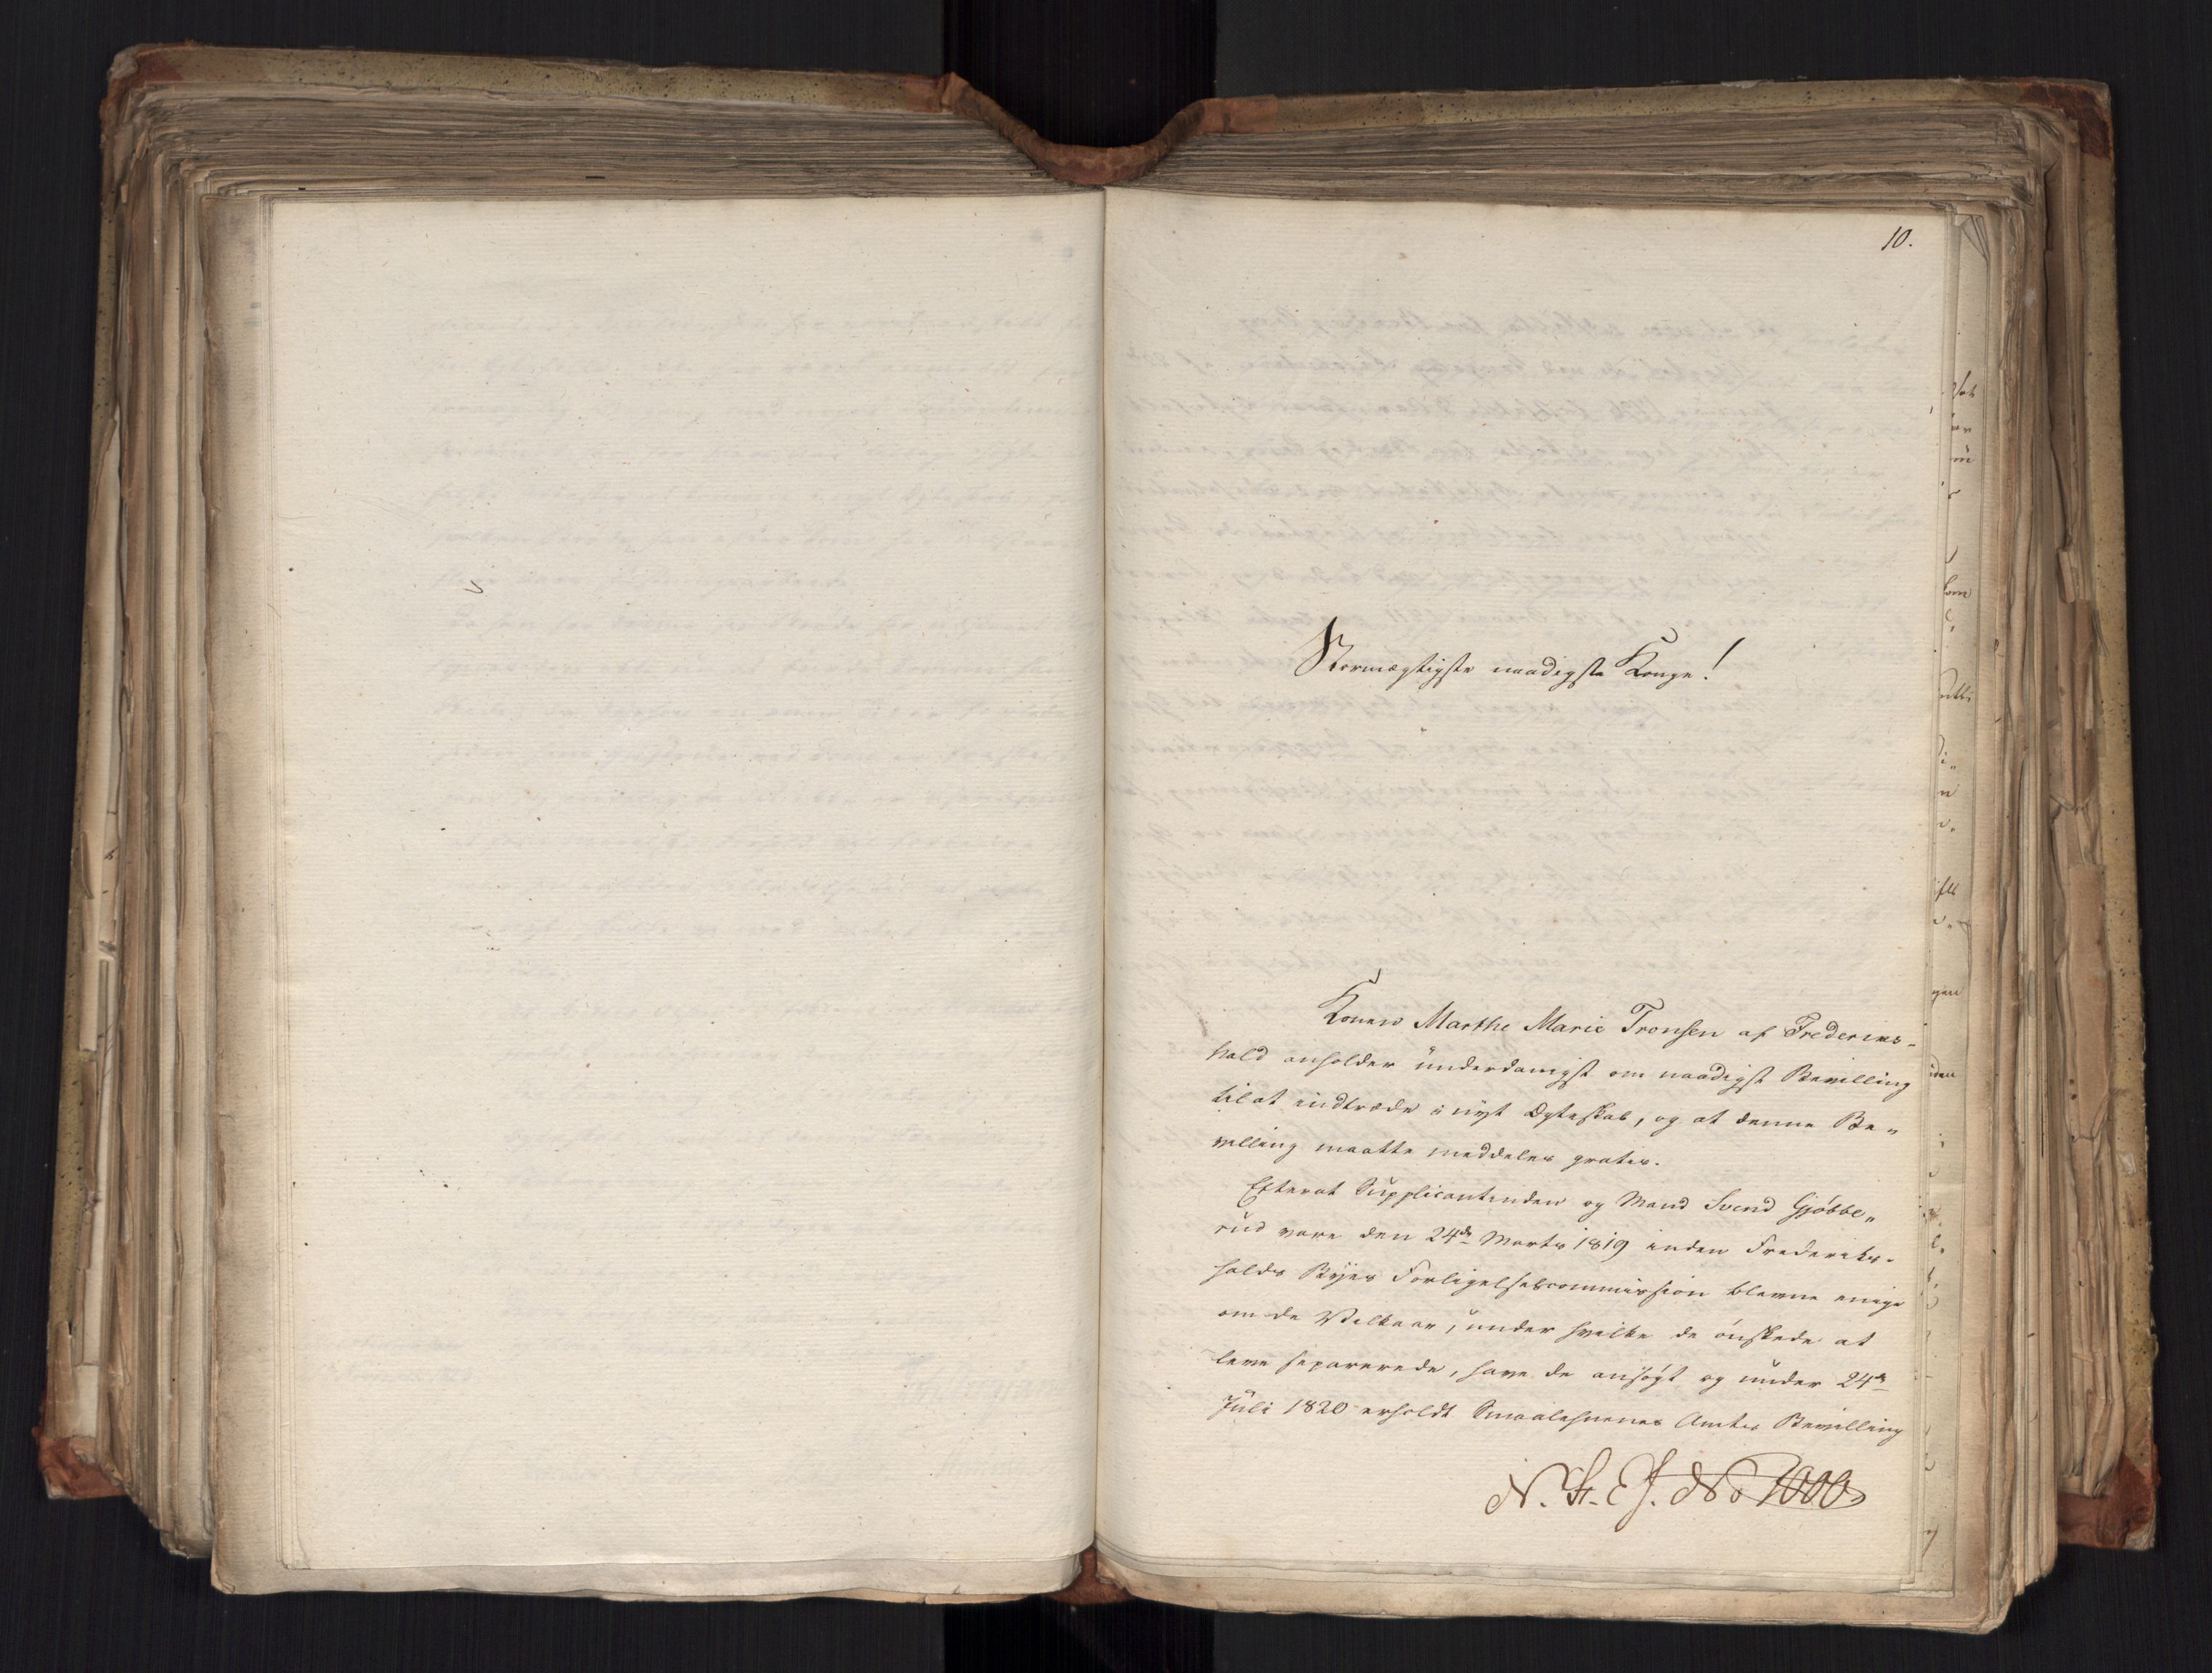 10.
Stormægtigste naadigste Konge!
Konen Marthe Marie Tronsen af Frederiks-
hald anholder underdanigst om naadigst Bevilling
til at indtræde i nyt Ægteskab, og at denne Be-
villing maatte meddeles gratis.
Efterat Supplicantinden og Mand Svend Gjøbbe-
rud vare den 24de Marts 1819 inden Frederiks-
halds Byes Forligelsescommission blevne enige
om de Vilkaar, under hvilke de ønskede at
leve separerede, have de ansøgt og under 24de
Juli 1820 erholdt Smaalehnenes Amtes Bevilling